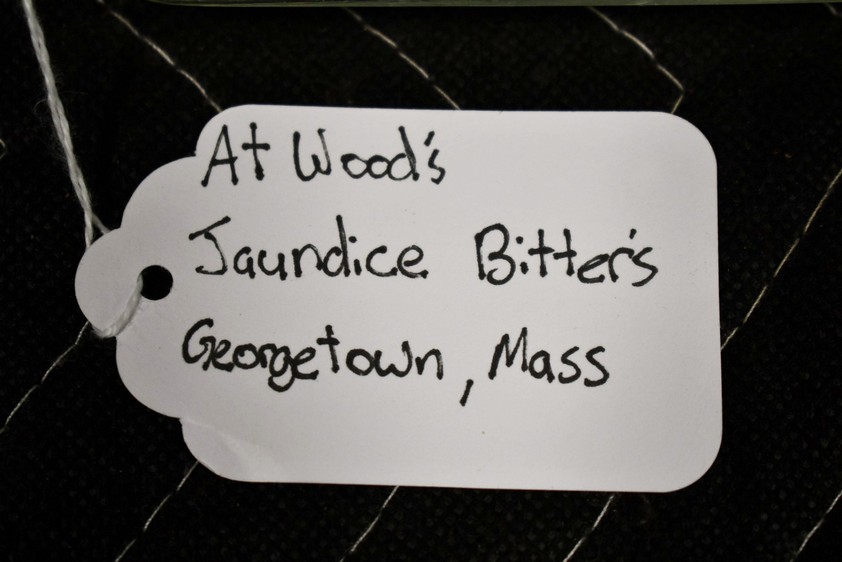 At Wood's
Jaundice Bitter's
Georgetown, Mass